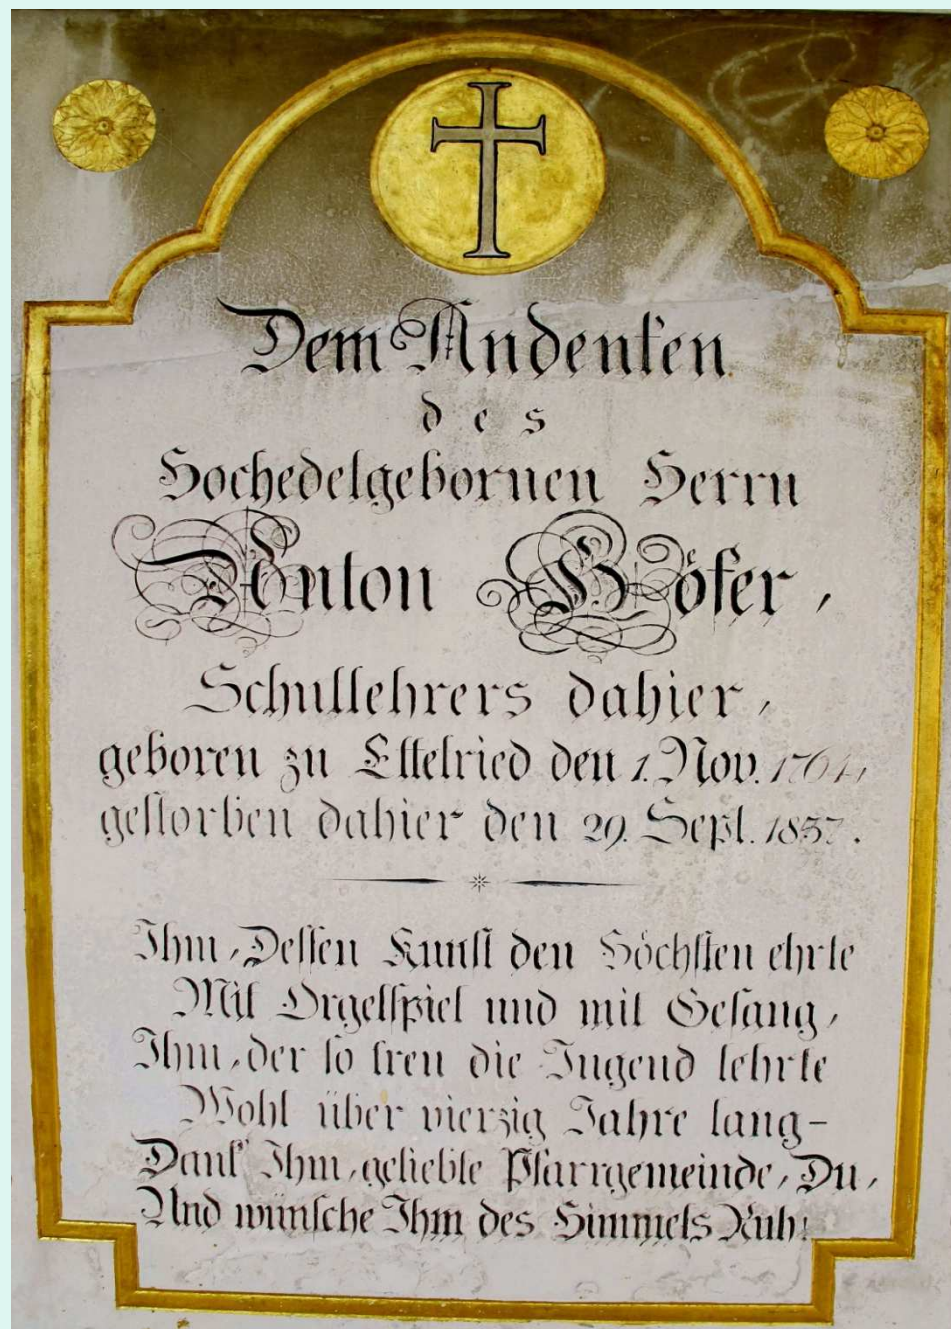 Dem Andenken
des
Hochedelgebornen Herrn
Anton Höfer,
Schullehrers dahier,
geboren zu Ettelried den 1. Nov. 1764,
gestorben dahier den 29. Sept. 1837.
Ihm, Dessen Kunst den Höchsten ehrte
Mit Orgelspiel und mit Gesang,
Ihm, der so treu die Jugend lehrte
Wohl über vierzig Jahre lang-
Dank' Ihm, geliebte Pfarrgemeinde, Du,
Und wünsche Ihm des Himmels Ruh!